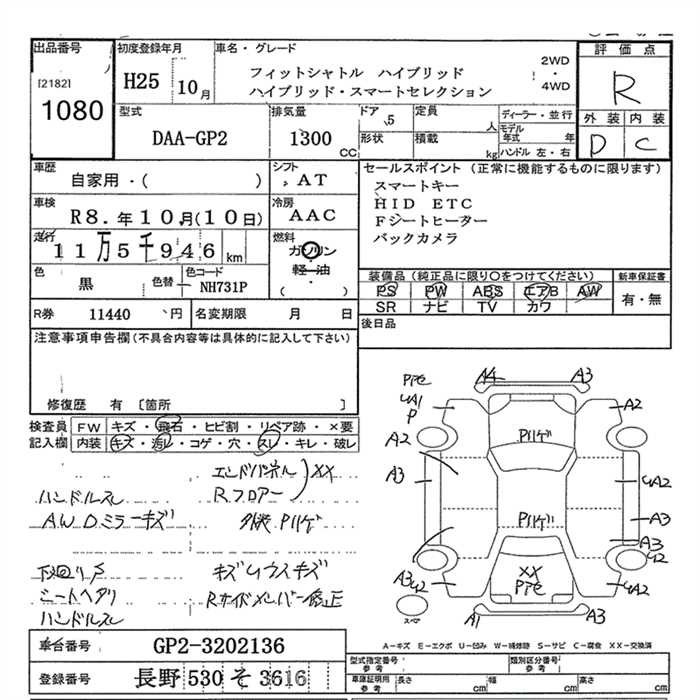 出品番号
[2182]
1080
初度登録年月
H25 10月
車名・グレード
フィットシャトル ハイブリッド
ハイブリッド・スマートセレクション
2WD
・
4WD
評価点
R
外装 内装
D C
型式
DAA-GP2
排気量
1300
CC
ドア
5
形状
定員
人
積載
kg
ディーラー・並行
モデル年式 年
ハンドル 左・右
車歴
自家用・( )
シフト
AT
車検
R8.年10月(10日)
冷房
AAC
走行
11万5千946 km
燃料
ガソリン
軽油
・
( )
色
黒
色替
色コード
NH731P
セールスポイント (正常に機能するものに限ります)
スマートキー
HID ETC
Fシートヒーター
バックカメラ
装備品(純正品に限り○をつけてください)
PS PW ABS エアB AW
SR ナビ TV カワ
新車保証書
有・無
R券 11440 円
名変期限 月 日
後日品
注意事項申告欄(不具合内容等は具体的に記入して下さい)
修復歴 有 [箇所 ]
検査員
記入欄
FW キズ・飛石・ヒビ割・リペア跡・×要
内装 キズ・汚レ・コゲ・穴・スレ・キレ・破レ
エンドパネル XX
ハンドルスレ
Rフロアー
AW Dミラーキズ
外板 Pハゲ
下回りS
シートヘタリ
ハンドルスレ
Rサイドメンバー修正
A4
A3
A1
P
A2
A2
Pハゲ
A3
A2
Pハゲ
A3
A3
A3
XX
A2
スペア
A1
A3
車台番号 GP2-3202136
登録番号 長野 530 そ 3616
A-キズ E-エクボ U-凹み W-補修跡 S-サビ C-腐食 XX-交換済
型式指定番号
参考
類別区分番号
参考
車庫証明用
参考
長さ cm 幅 cm 高さ cm